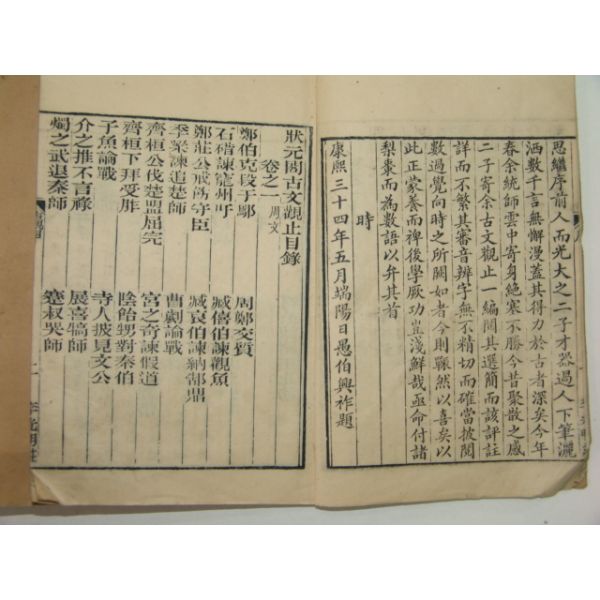 思繼序前人而光大之二子才器過人下筆灑
洒數千言無懈漫蓋其得力於古者深矣今年
春余統師雲中寄身絶塞不勝今昔聚散之感
二子寄余古文觀止一編閱其選簡而該評註
詳而不繁其審音辨字無不精切而確當披閱
數過覺向時之所闕如者今則釋然以喜矣以
此正蒙養而裨後學厥功豈淺鮮哉亟命付諸
梨棗而為數語以弁其首
時
康熙三十四年五月端陽日愚伯興祚題
狀元閣古文觀止目錄
卷之一 周文
鄭伯克段于鄢 周鄭交質
石碏諫寵州吁 臧僖伯諫觀魚
鄭莊公戒飭守臣 臧哀伯諫納郜鼎
季梁諫追楚師 曹劌論戰
齊桓公伐楚盟屈完 宮之奇諫假道
齊桓下拜受胙 陰飴甥對秦伯
子魚論戰 寺人披見文公
介之推不言祿 展喜犒師
燭之武退秦師 蹇叔哭師